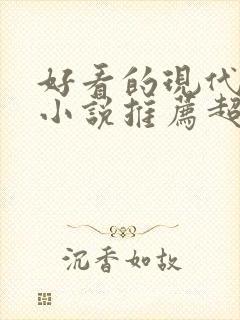 好看的現代
小說推薦超
沉香如故